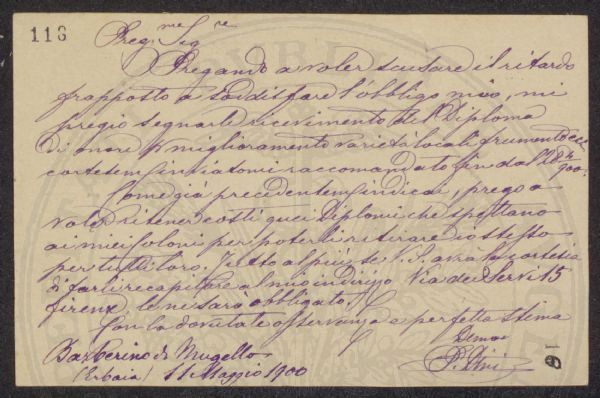 118
Preg.me Sig.re
Pregando a voler scusare il ritardo
frapposto a soddisfare l'obbligo mio, mi
pregio segnarle ricevimento del Diploma
di onore miglioramento varietà locali frumento ecc
cortesem. inviatomi raccomandato fin dal
900.
Come già precedentem. indicai, prego a
voler ritener costì quei Diplomi che spettano
ai miei Coloni per poterli ritirare io stesso
per tutti loro. Tutto al più se V. S. avrà la cortesia
di farli recapitare al mio indirizzo Via dei Servi 15
Firenze le ne sarò obbligato.
Con la dovuta osservanza e perfetta stima
Barberino di Mugello
Devmo
(Erbaia) 11 Maggio 1900